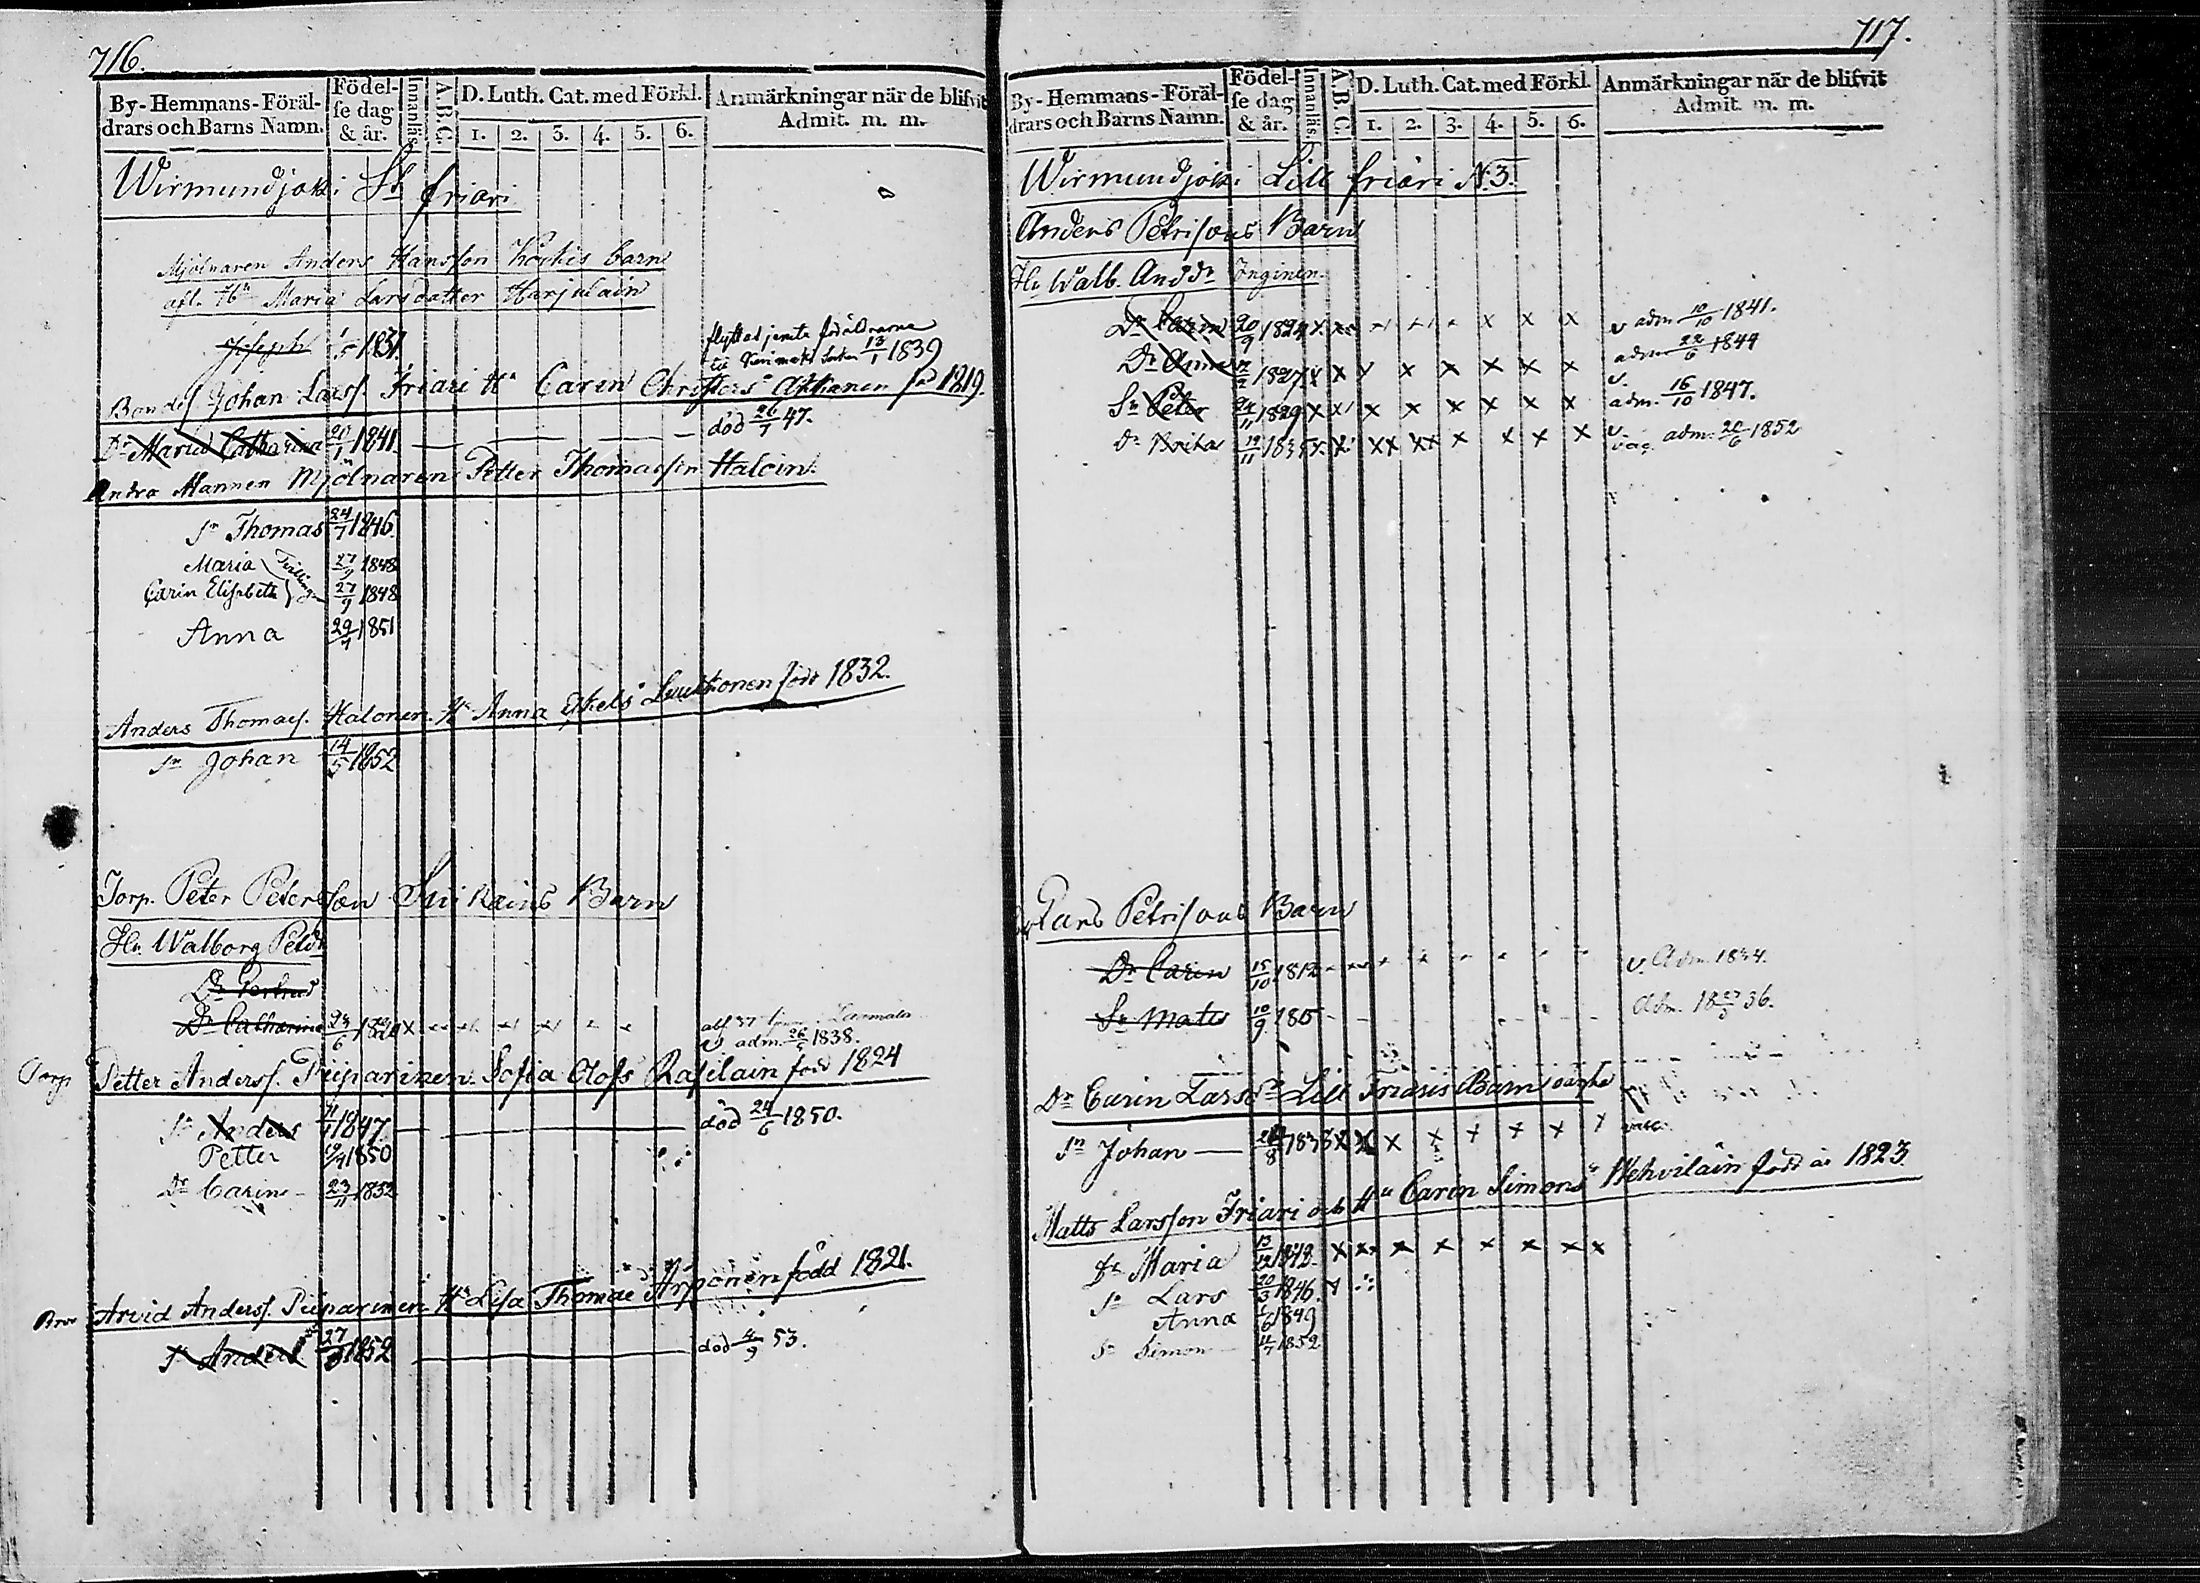 716.
By- Hemmans- Föräl-
drars och Barns Namn.
Födel-
ſe dag
& år.
Innanläs.
A.B.C.
D. Luth. Cat. med Förkl.
1. 2. 3. 4. 5. 6.
Anmärkningar när de blifvit
Admit. m. m.
Wirmundjoki St. friari
Mjölnaren Anders Hansson Korkis barn
afl. Hu Maria Larsdotter Harjulain
Joseph 1/5 1831. flyttat jemte föräldrarna
til socken 13/1 1839
Bonde Johan Larss. Friari Hu Carin Christers född 1819.
Dr Maria Catharina 1841. död 26/7 47.
Andra Mannen Mjölnaren Petter Thomasson Haloin.
Sn Thomas 24/7 1846.
Maria 27/9 1848
Carin Elisabeth 27/9 1848
Anna 29/7 1851
Anders Thomass. Halonen Hu Anna Eskels Luukkonen född 1832.
Sn Johan 14/5 1852
Torp. Peter Petersson Suikains Barn
Hu Walborg Petdr
Dr Gertrud
Dr Catharina 23/6 1820 x
v adm. 1838.
Torp Petter Anderss. Piiparinen Sofia Olofs Rasilain född 1824
Sn Anders 1847. död 24/6 1850.
Petter 1850
Dr Carin 23/11 1852
Arvid Anderss. Piiparinen Hu Lisa Thomae Arponen född 1821.
Sn Anders 27/ 1852 död 4/9 53.
717.
By- Hemmans- Föräl-
drars och Barns Namn.
Födel-
ſe dag
& år.
Innanläs.
A.B.C.
D. Luth. Cat. med Förkl.
1. 2. 3. 4. 5. 6.
Anmärkningar när de blifvit
Admit. m. m.
Wirmundjoki Lill friari N.3.
Anders Petrisons Barn
Hu Walb. Anddr Inginen
Dr Carin 20/9 1824 x x x x v adm. 10/10 1841.
Dr Anna 1827 x x x x x x x adm. 22/6 1844
Sn Peter 24/11 1829 x x x x x x x x v. adm. 16/10 1847.
Dr Brita 19/11 1835 x. xx xx x x x x v. vac. adm. 20/6 1852
Lars Petrisons Barn
Dr Carin 15/10 1812 v. Adm. 1834.
Sn Mats 10/9 1815 Adm. 36.
Dr Carin Larsdr Lill Friaris Barn oägta
Sn Johan 1838 x x x x x x x x vacc.
Matts Larsson Friari och Hu Carin Simons Wehviläin född år 1823.
Dr Maria 13/12 1842. x x x x x x x x
Sn Lars 20/3 1846. x
Anna 1/6 1849
Sn Simon 1852